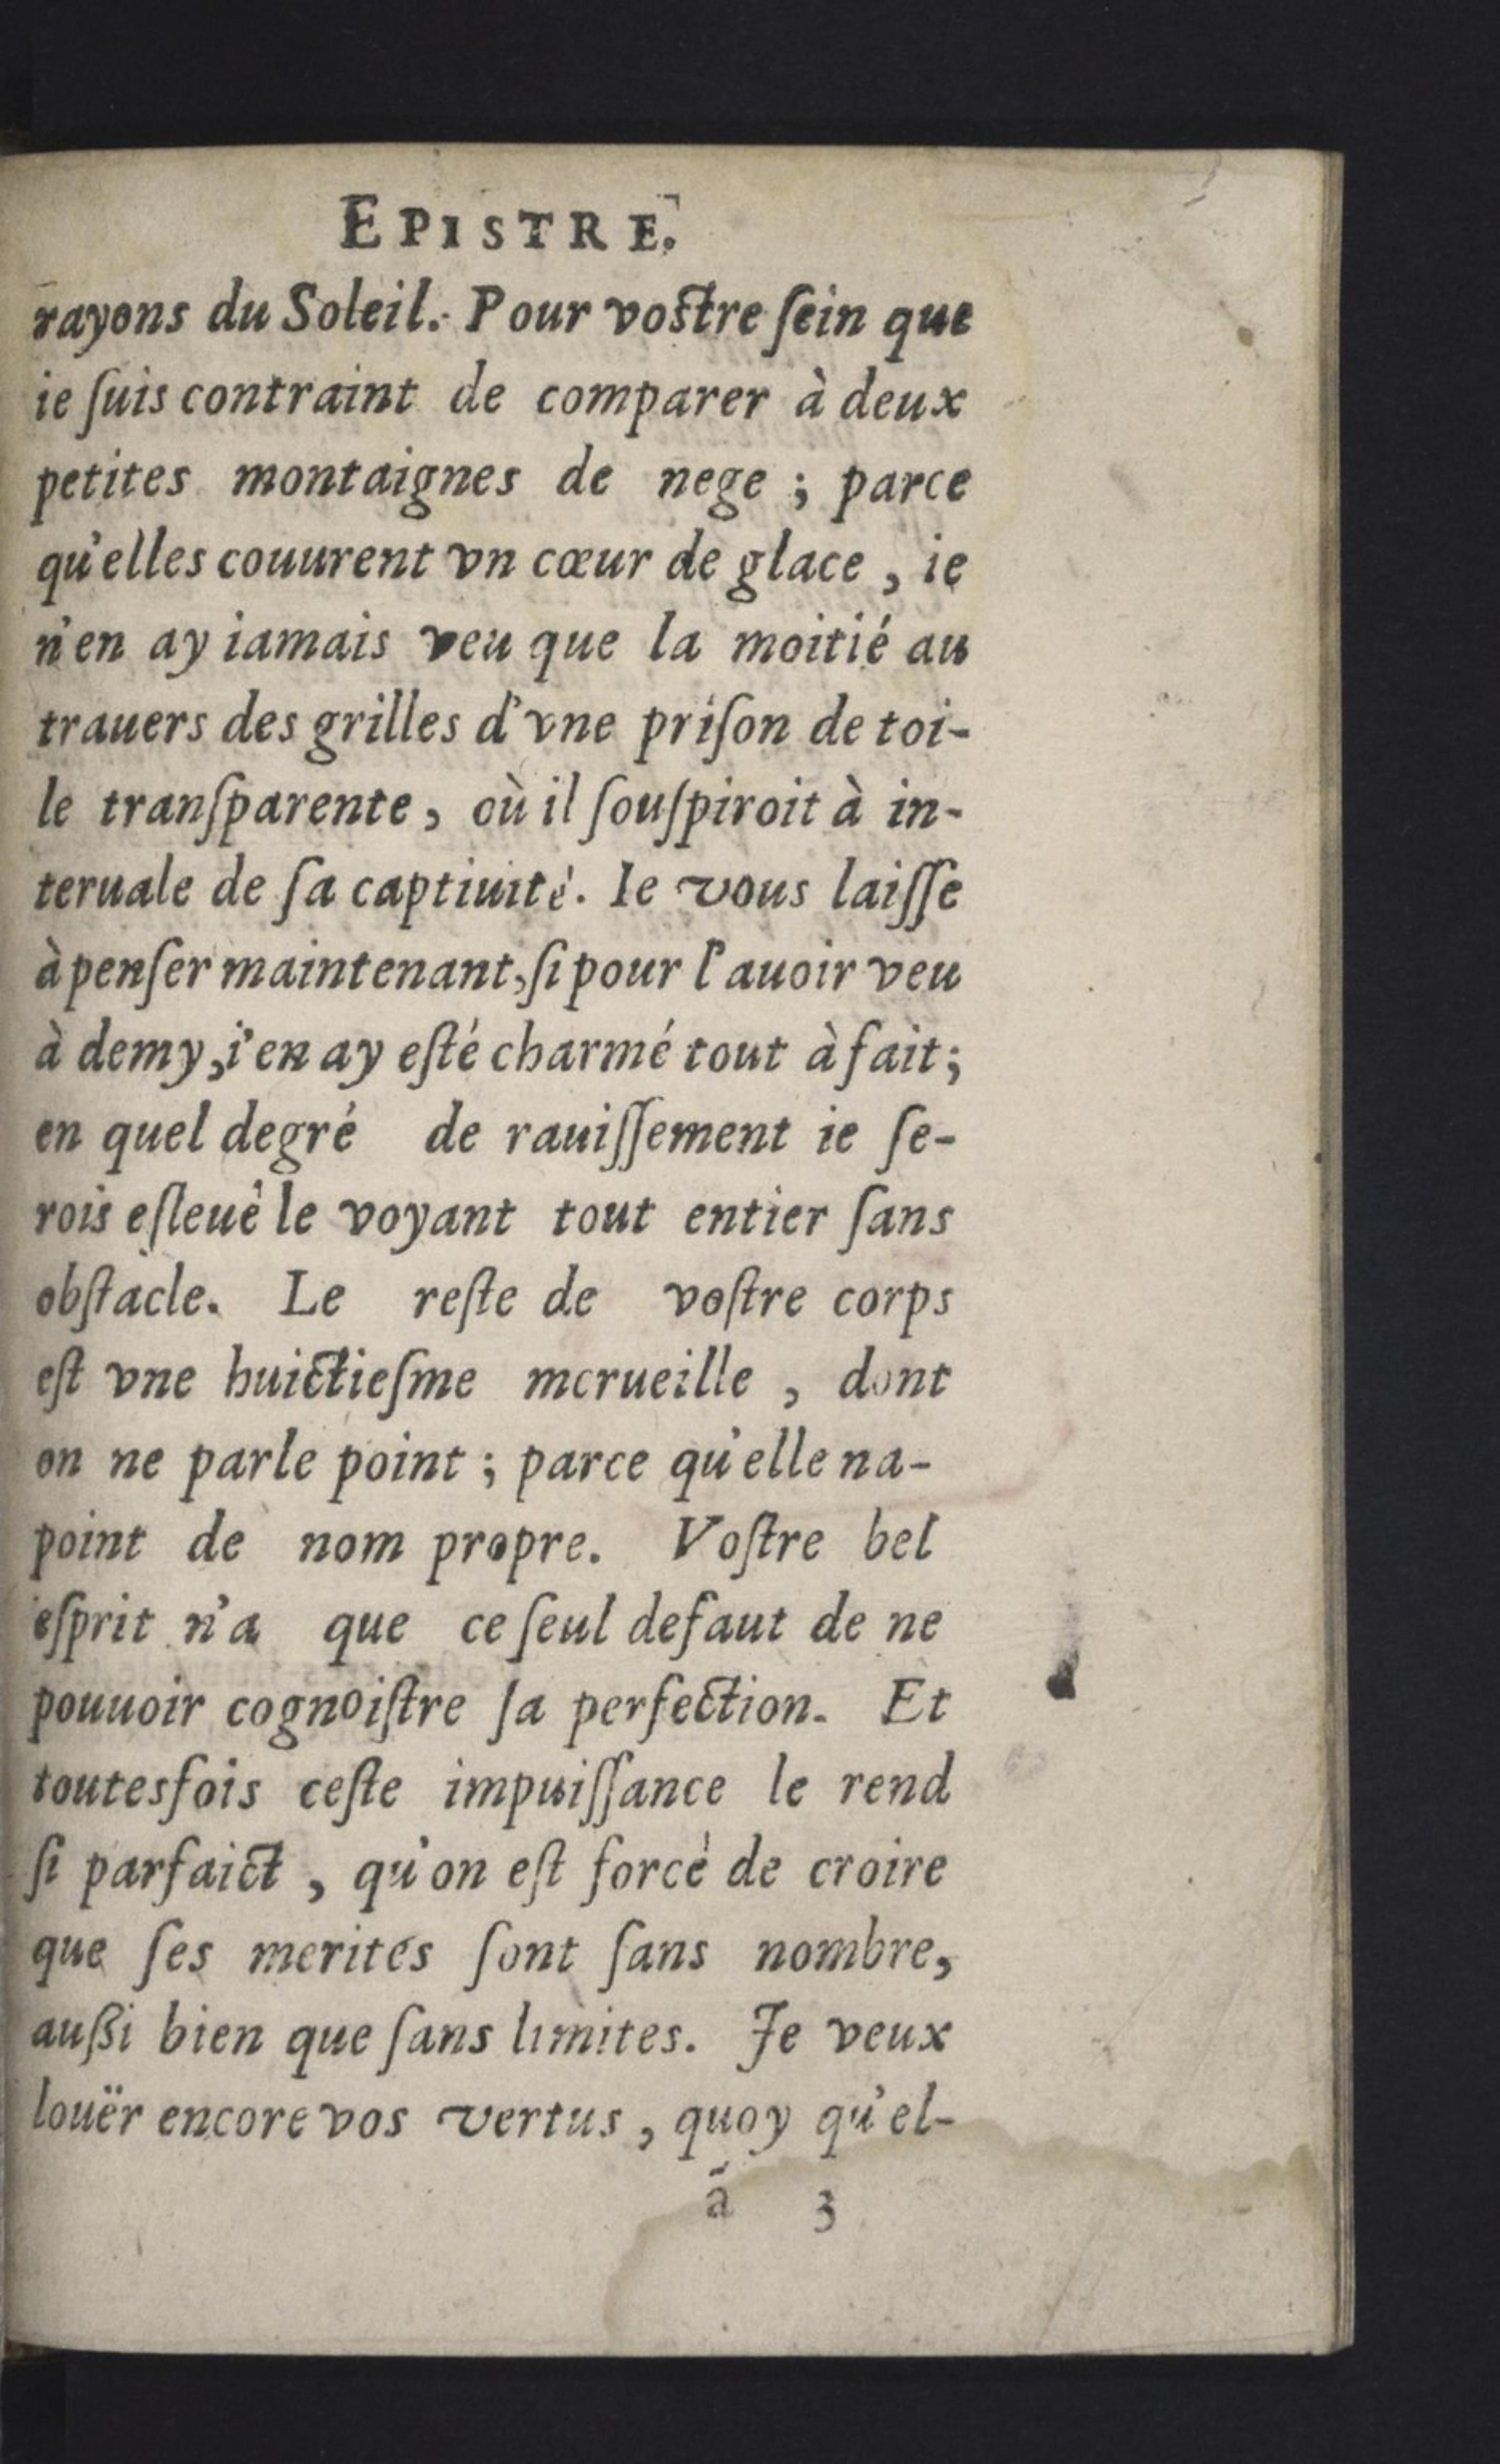 EPISTRE.
rayons du Soleil. Pour voſtre ſein que
ie ſuis contraint de comparer à deux
petites montaignes de nege ; parce
qu'elles couurent vn cœur de glace , ie
n'en ay iamais veu que la moitié au
trauers des grilles d'vne priſon de toi-
le tranſparente , où il ſouſpiroit à in-
teruale de ſa captiuité. Ie vous laiſſe
à penſer maintenant, ſi pour l'auoir veu
à demy, i'en ay eſté charmé tout à fait ;
en quel degré de rauiſſement ie ſe-
rois eſleué le voyant tout entier ſans
obſtacle. Le reſte de voſtre corps
eſt vne huictieſme merueille , dont
on ne parle point ; parce qu'elle na-
point de nom propre. Voſtre bel
eſprit n'a que ce ſeul defaut de ne
pouuoir cognoiſtre ſa perfection. Et
toutesfois ceſte impuiſſance le rend
ſi parfaict , qu'on eſt forcé de croire
que ſes merites ſont ſans nombre,
außi bien que ſans limites. Je veux
louër encore vos vertus , quoy qu'el-
ã 3